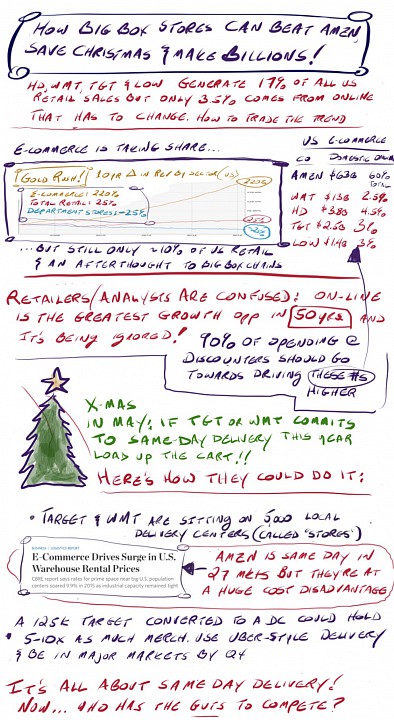 HOW BIG BOX STORES CAN BEAT AMZN,
SAVE CHRISTMAS & MAKE BILLIONS!
HD, WMT, TGT & LOW GENERATE 17% OF ALL US
RETAIL SALES BUT ONLY 3.5% COMES FROM ONLINE
THAT HAS TO CHANGE. HOW TO TRADE THE TREND
E-COMMERCE IS TAKING SHARE...
"GOLD RUSH!" 10yr Δ IN REV BY SECTOR (US)
220%
E-COMMERCE: 220%
TOTAL RETAIL: 25%
DEPARTMENT STORES: -25%
25%
...BUT STILL ONLY ~10% OF US RETAIL
& AN AFTERTHOUGHT TO BIG BOX CHAINS
US E-COMMERCE
CO DOMESTIC ONLINE
AMZN $63B 60%
TOTAL
WMT $13B
HD 4.5%
TGT 3%
LOW 3%
RETAILERS/ANALYSTS ARE CONFUSED: ON-LINE
IS THE GREATEST GROWTH OPP IN 50 yrs AND
IT'S BEING IGNORED!
90% OF SPENDING @
DISCOUNTERS SHOULD GO
TOWARDS DRIVING THESE #s
HIGHER
X-MAS
IN MAY: IF TGT OR WMT COMMITS
TO SAME-DAY DELIVERY THIS YEAR
LOAD UP THE CART!!
HERE'S HOW THEY COULD DO IT:
• TARGET & WMT ARE SITTING ON 5,000 LOCAL
DELIVERY CENTERS (CALLED "STORES")
BUSINESS | LOGISTICS REPORT
E-Commerce Drives Surge in U.S.
Warehouse Rental Prices
CBRE report says rates for prime space near big U.S. population
centers soared 9.9% in 2015 as industrial capacity remained tight
AMZN IS SAME DAY IN
27 METS BUT THEY'RE AT
A HUGE COST DISADVANTAGE
A 125K TARGET CONVERTED TO A DC COULD HOLD
• 5-10X AS MUCH MERCH. USE UBER-STYLE DELIVERY
& BE IN MAJOR MARKETS BY Q4
IT'S ALL ABOUT SAME DAY DELIVERY!
NOW... WHO HAS THE GUTS TO COMPETE?